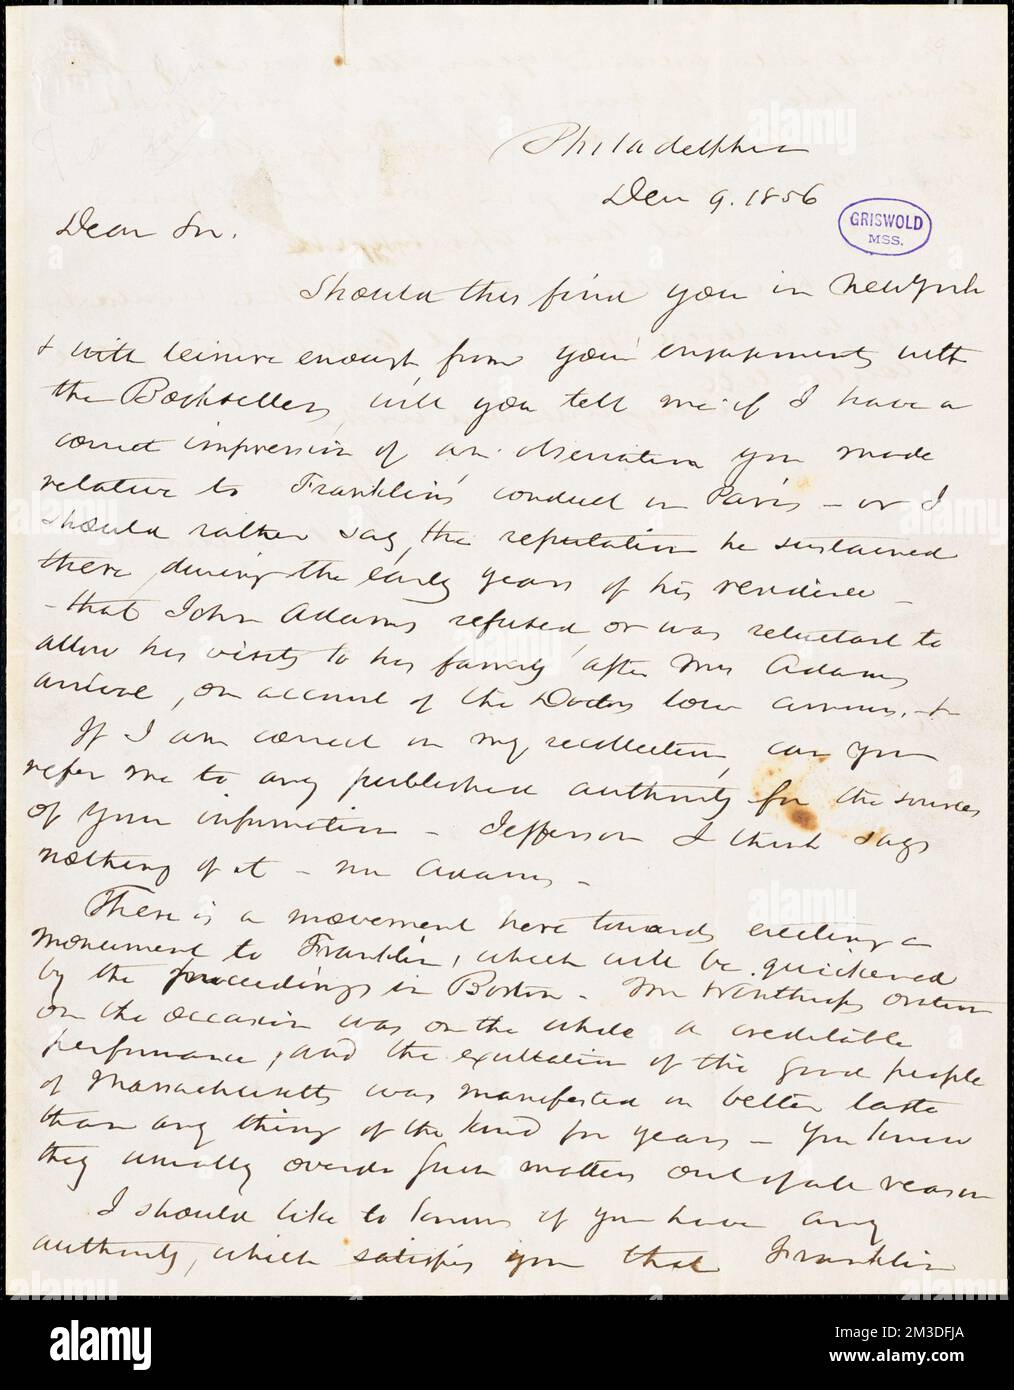 Philadelphia
Dec 9. 1856
GRISWOLD
MSS.
Dear Sir.
Should this find you in New York
& with leisure enough from your engagements with
the Booksellers, will you tell me if I have a
correct impression of an observation you made
relative to Franklin's conduct in Paris — or I
should rather say, the reputation he sustained
there, during the early years of his residence —
— that John Adams refused, or was reluctant to
allow his visits to his family, after Mrs Adams
arrival, on account of the Doctors low amours, &
If I am correct in my recollection, can you
refer me to any published authority for the sources
of your information — Jefferson I think says
nothing of it — nor Adams —
There is a movement here towards erecting a
monument to Franklin, which will be quickened
by the proceedings in Boston — Mr Winthrop's oration
on the occasion was on the whole a creditable
performance, and the exultation of the good people
of Massachusetts was manifested in better taste
than any thing of the kind for years — You know
they usually overdo such matters out of all reason
I should like to know if you have any
authority, which satisfies you that Franklin
alamy
Image ID: 2M3DFJA
www.alamy.com